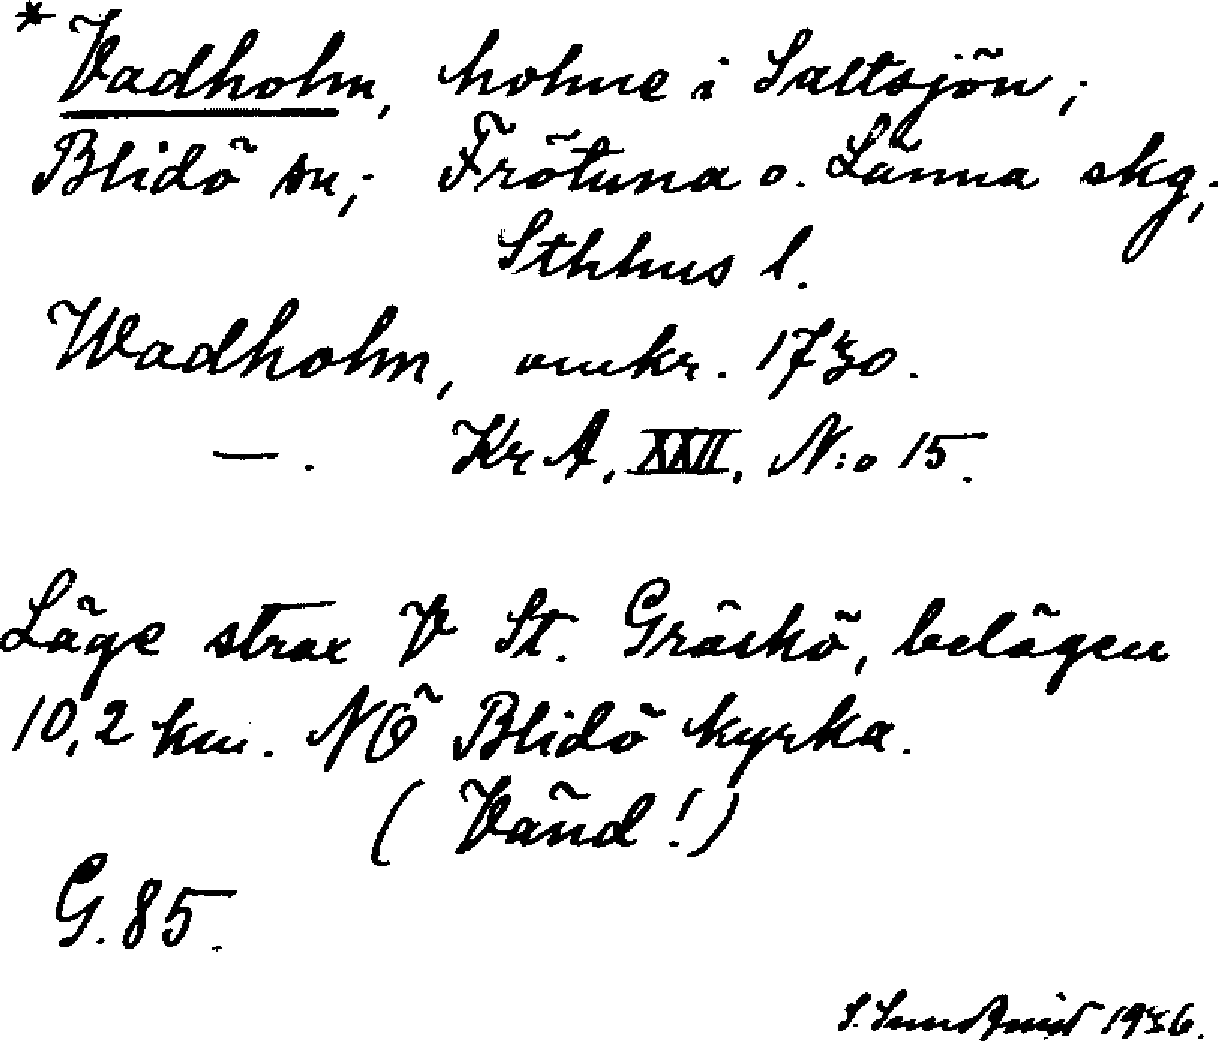 * Vadholm, holme i Saltsjön;
Blidö sn; Frötuna o. Länna skg;
Sthlms l.
Wadholm, omkr. 1730.
— . Kr A, XXII, N:o 15.
Läge strax V St. Gräskö, belägen
10,2 km. NÖ Blidö kyrka.
( Vänd ! )
G. 85.
S. Sundqvist 1946.